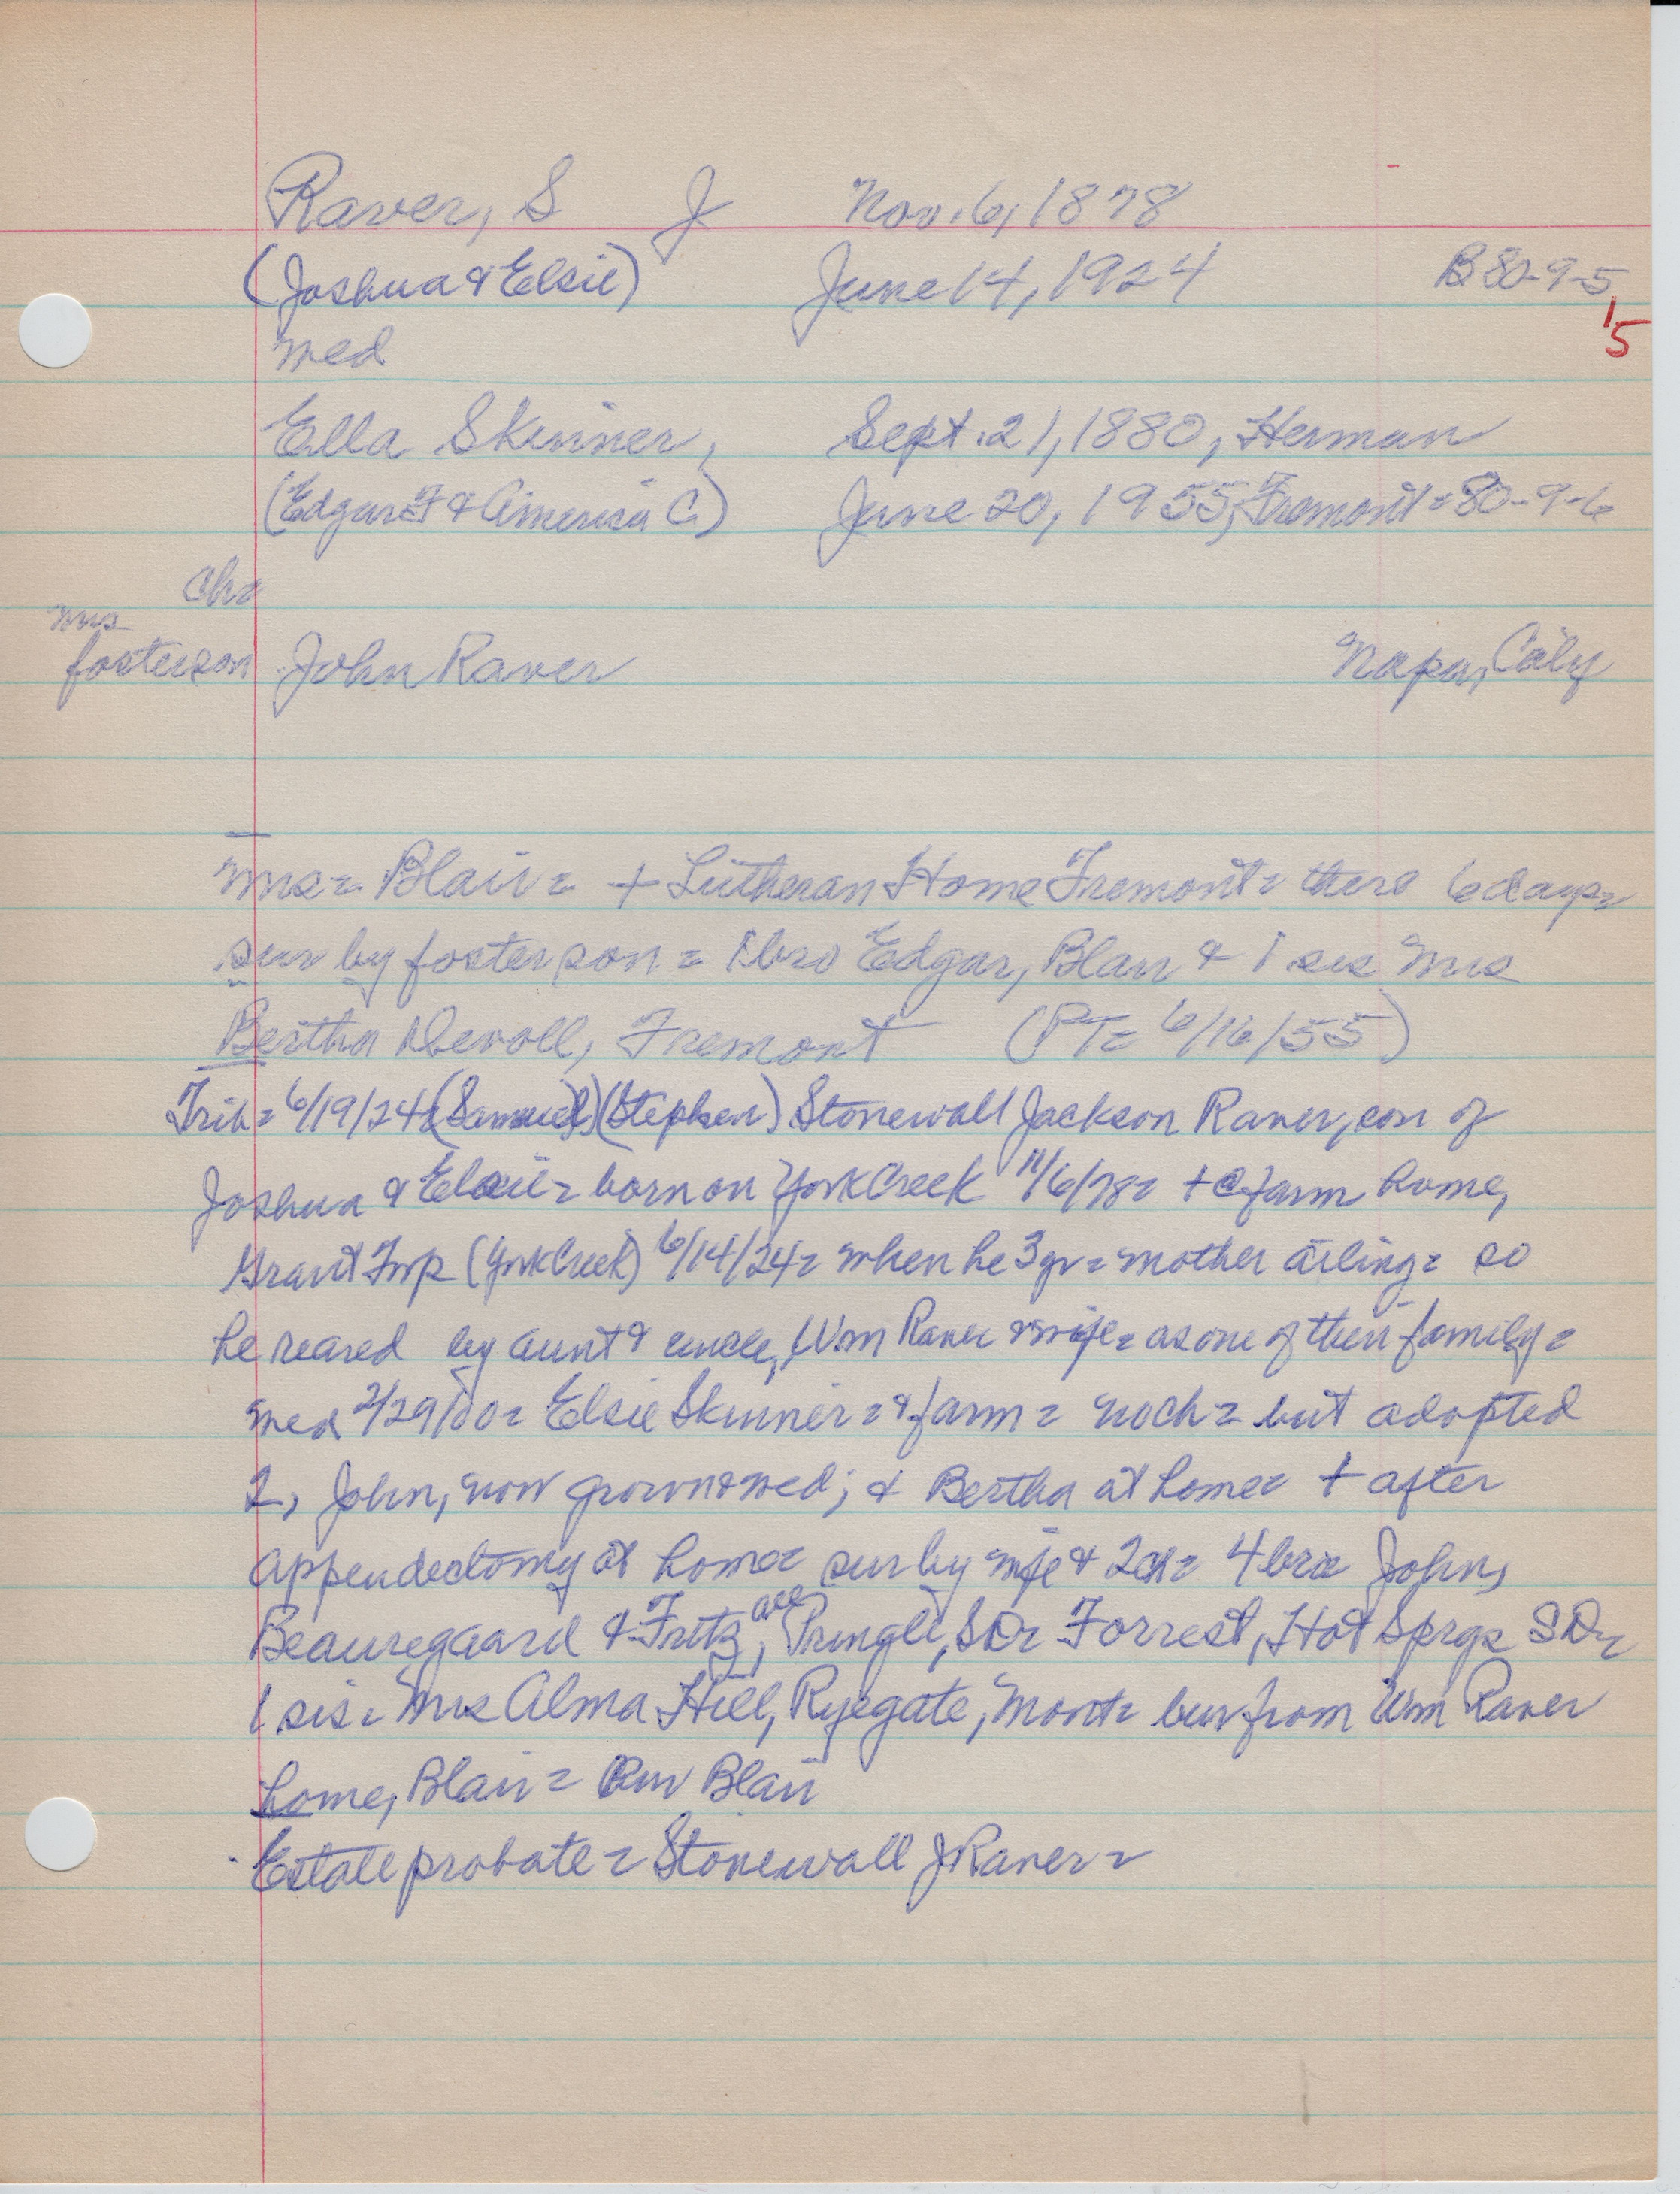 Raver, S J Nov. 6, 1878
(Joshua & Elsie) June 14, 1924 B 80-9-5
15
med
Ella Skinner, Sept. 21, 1880, Herman
(Edgar F & America C) June 20, 1955, Fremont = 80-9-6
Ch=
mrs
fosterson John Raver Napa, Calif
mrs = Blair = + Lutheran Home Fremont = there 6 days =
sur by foster son = 1 bro Edgar, Blair & 1 sis Mrs
Bertha Devoll, Fremont (PT = 6/16/55)
Trib = 6/19/24 = (Samuel) (Stephen) Stonewall Jackson Raver, son of
Joshua & Elsie = born on York Creek 11/6/78 = + @ farm home,
Grant Twp (York Creek) 6/14/24 = when he 3 yr = mother ailing = so
he reared by aunt & uncle, Wm Raver & wife = as one of their family =
med 2/29/00 = Elsie Skinner = & farm = no ch = but adopted
2, John, now grown & med; & Bertha at home = + after
appendectomy at home = sur by wife & 2 ch = 4 bro John,
Beauregaard & Fritz, all Pringle, SD = Forrest, Hot Sprgs SD =
1 sis = Mrs Alma Hill, Ryegate, Mont = bur from Wm Raver
home, Blair = Blair
Estate probate = Stonewall J Raver =